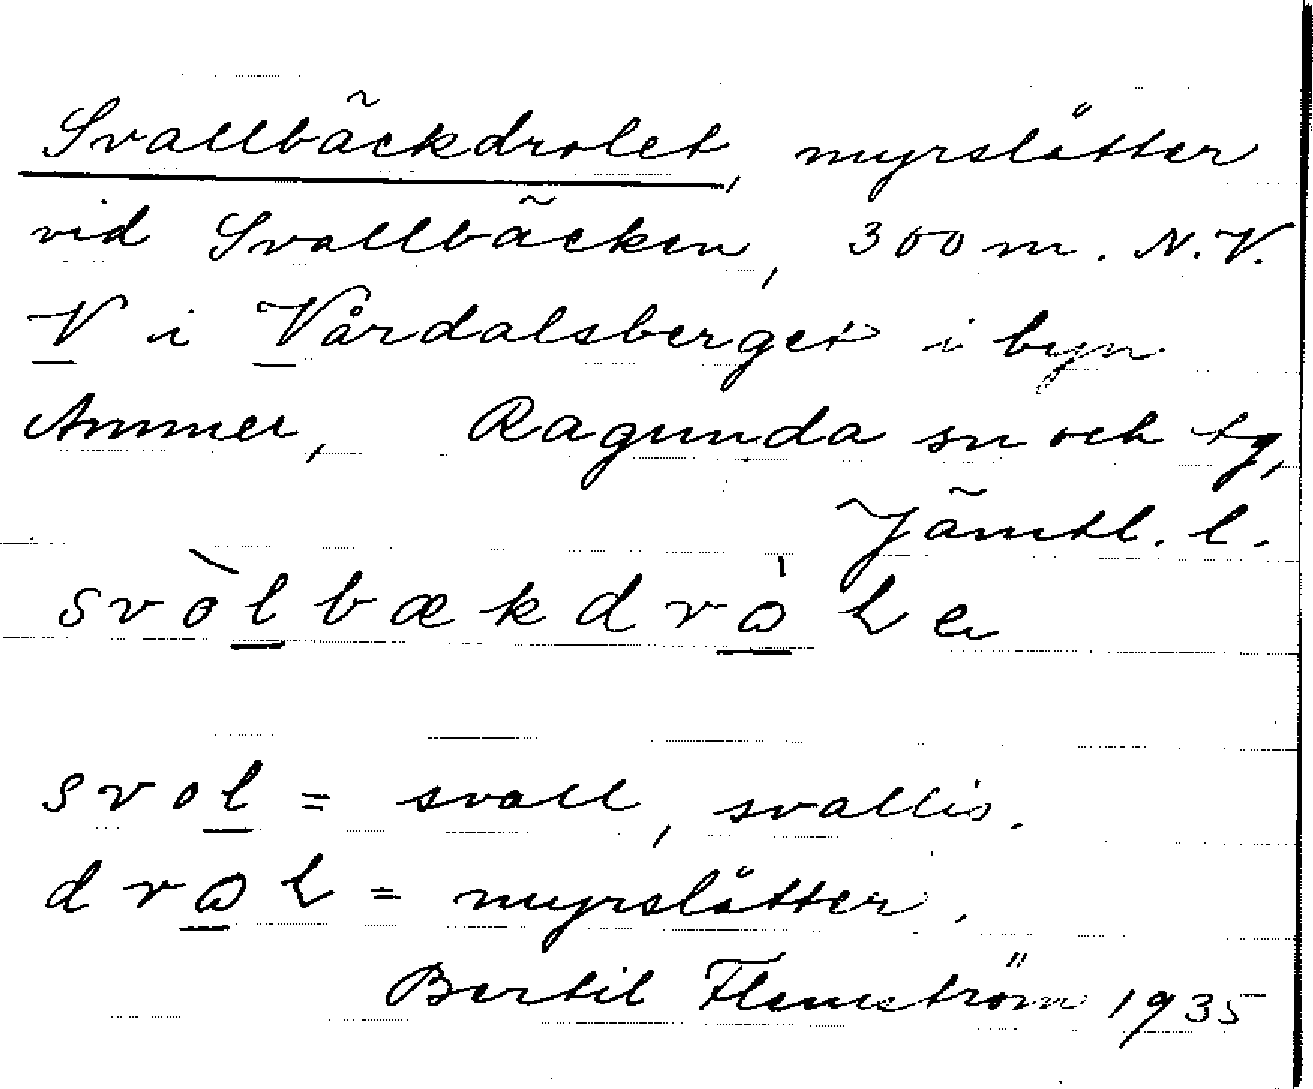 Svallbäckdrolet, myrslåtter
vid Svallbäcken, 300 m. N.V.
V i Vårdalsberget i byn
Ammer, Ragunda sn och tg,
Jämtl. l.
svòlbækdròɬe
svol = svall, svallis.
droɬ = myrslåtter.
Bertil Flemström 1935